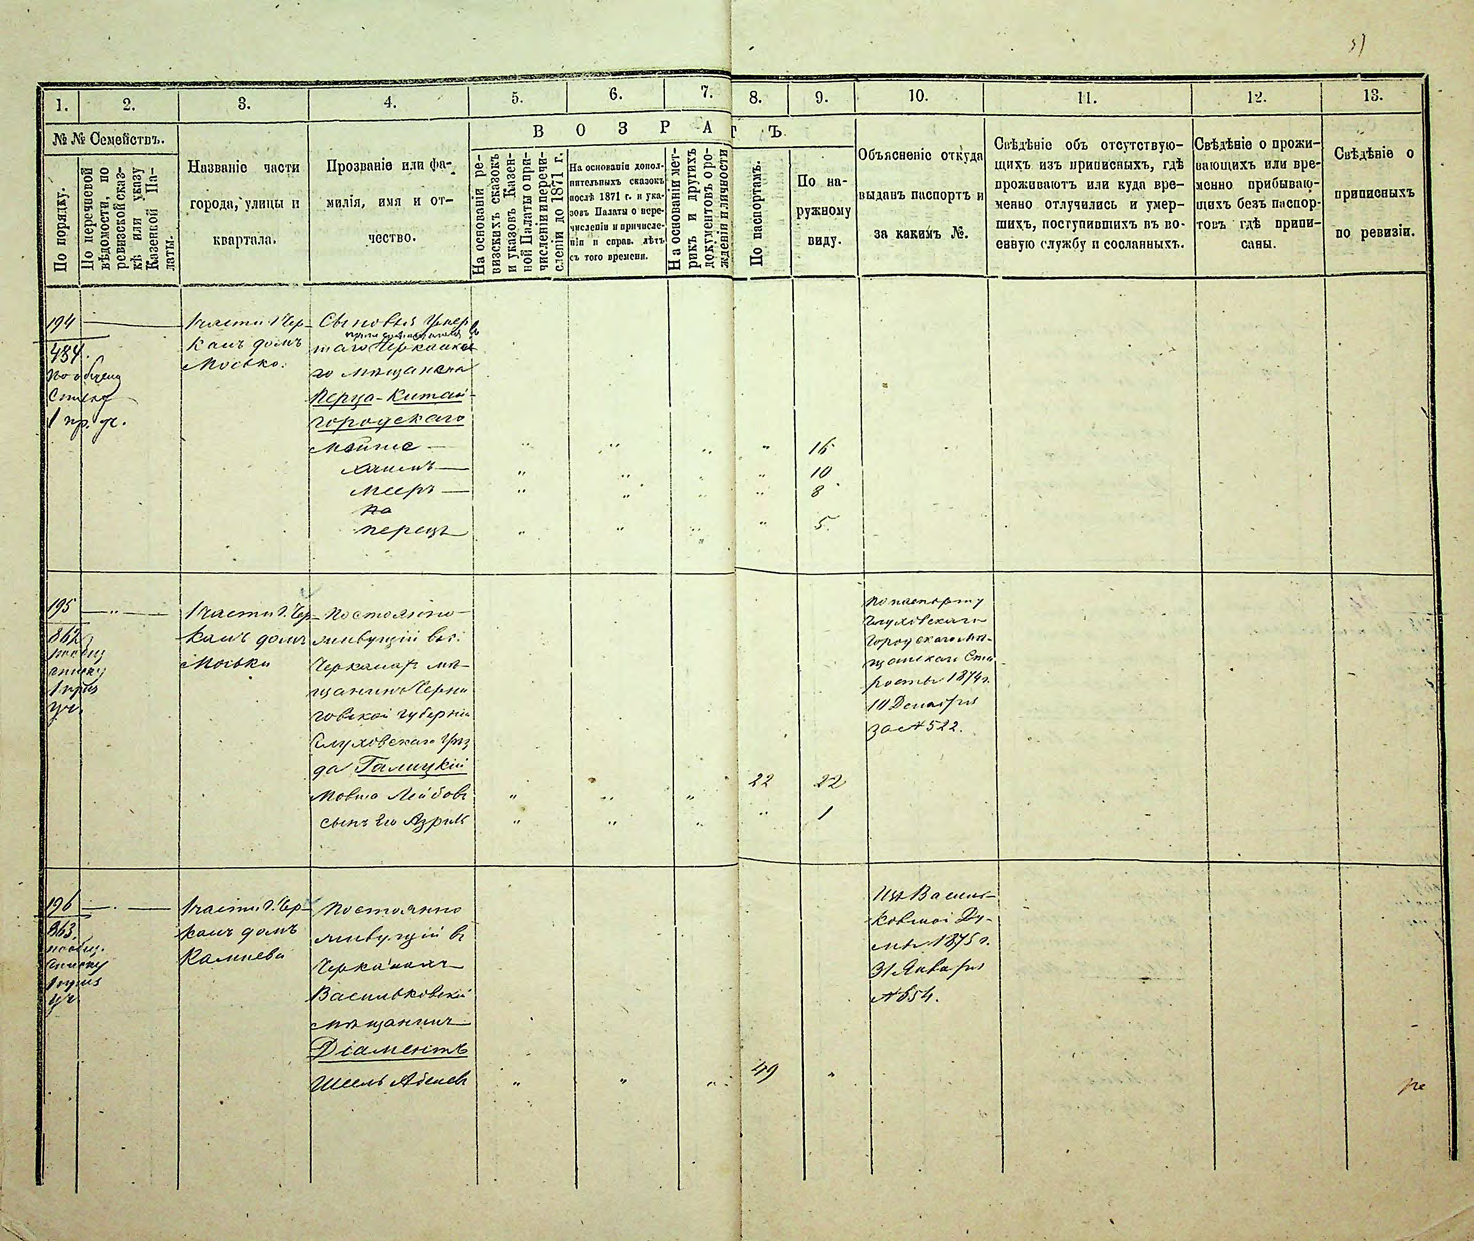 1.
2.
3.
4.
5.
6.
7.
8.
9.
10.
11.
12.
13.
№ № Семействъ.
По порядку.
По перечневой
вѣдомости, по
ревизской сказ-
кѣ или указу
Казенной Па-
латы.
Названіе части
города, улицы и
квартала.
Прозваніе или фа-
милія, имя и от-
чество.
ВОЗРАСТЪ
На основаніи ре-
визскихъ сказокъ
и указовъ Казен-
ной Палаты о при-
численіи и перечи-
сленіи до 1871 г.
На основаніи допол-
нительныхъ сказокъ
послѣ 1871 г. и ука-
зовъ Палаты о пере-
численіи и причисле-
ніи и справ. лѣтъ
съ того времени.
На основаніи мет-
рикъ и другихъ
документовъ о ро-
жденіи и личности
По паспортамъ.
По на-
ружному
виду.
Объясненіе откуда
выданъ паспортъ и
за какимъ №.
Свѣдѣніе объ отсутствую-
щихъ изъ приписныхъ, гдѣ
проживаютъ или куда вре-
менно отлучились и умер-
шихъ, поступившихъ въ во-
енную службу и сосланныхъ.
Свѣдѣніе о прожи-
вающихъ или вре-
менно прибываю-
щихъ безъ паспор-
товъ гдѣ припи-
саны.
Свѣдѣніе о
приписныхъ
по ревизіи.
194
484.
1 пр. уч.
1 части г. Чер-
касъ домъ
Мосько.
Сыновья Умер
шаго Черкаска
го мѣщанина
Перца-Китай-
городскаго
16
10
Мееръ 8
Перецъ 5
195
862
1 части г. Чер-
касъ домъ
Моська
Постоянно
живущій въ
Черкасахъ мѣ-
щанинъ Черни
говской губерніи
Глуховскаго Уѣз
да Галицкій
Мовша Лейбовъ 22 22
сынъ его Азрилъ 1
По паспорту
Глуховскаго
Городскаго Мѣ-
щанскаго Ста
росты 1874 г.
10 Декабря
за № 522.
196
863
1 части г. Чер-
касъ домъ
Постоянно
живущій въ
Черкасахъ
Васильковскій
мѣщанинъ
Діаментъ
49
Изъ Василь-
ковской Ду-
мы 1875 г.
31 Января
№ 654.